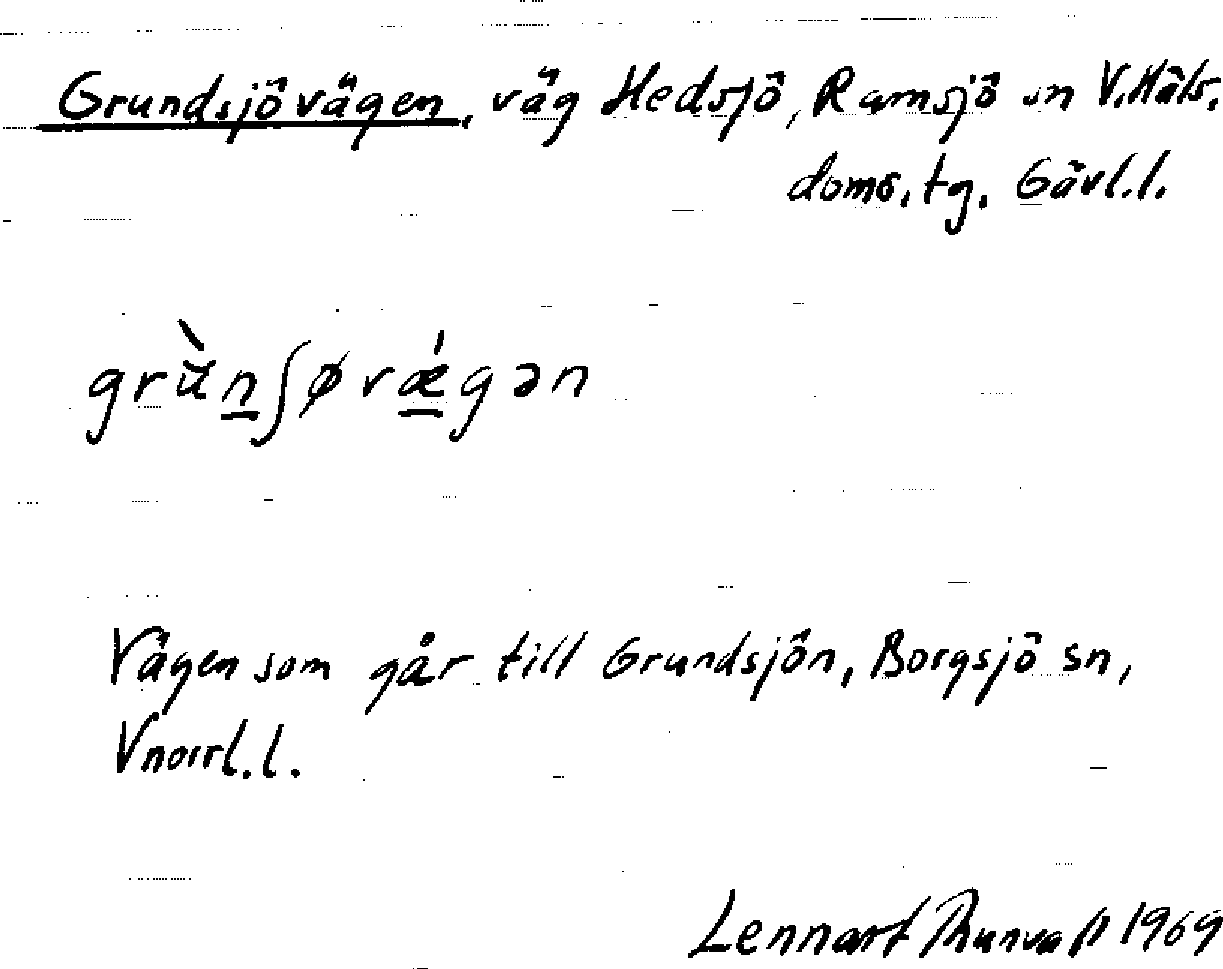 Grundsjövägen, väg Hedsjö, Ramsjö sn V.Häls.
doms.tg. Gävl.l.
grùn̲ʃøvǽ̲gən
Vägen som går till Grundsjön, Borgsjö sn,
Vnorrl.l.
Lennart Thunvall 1969